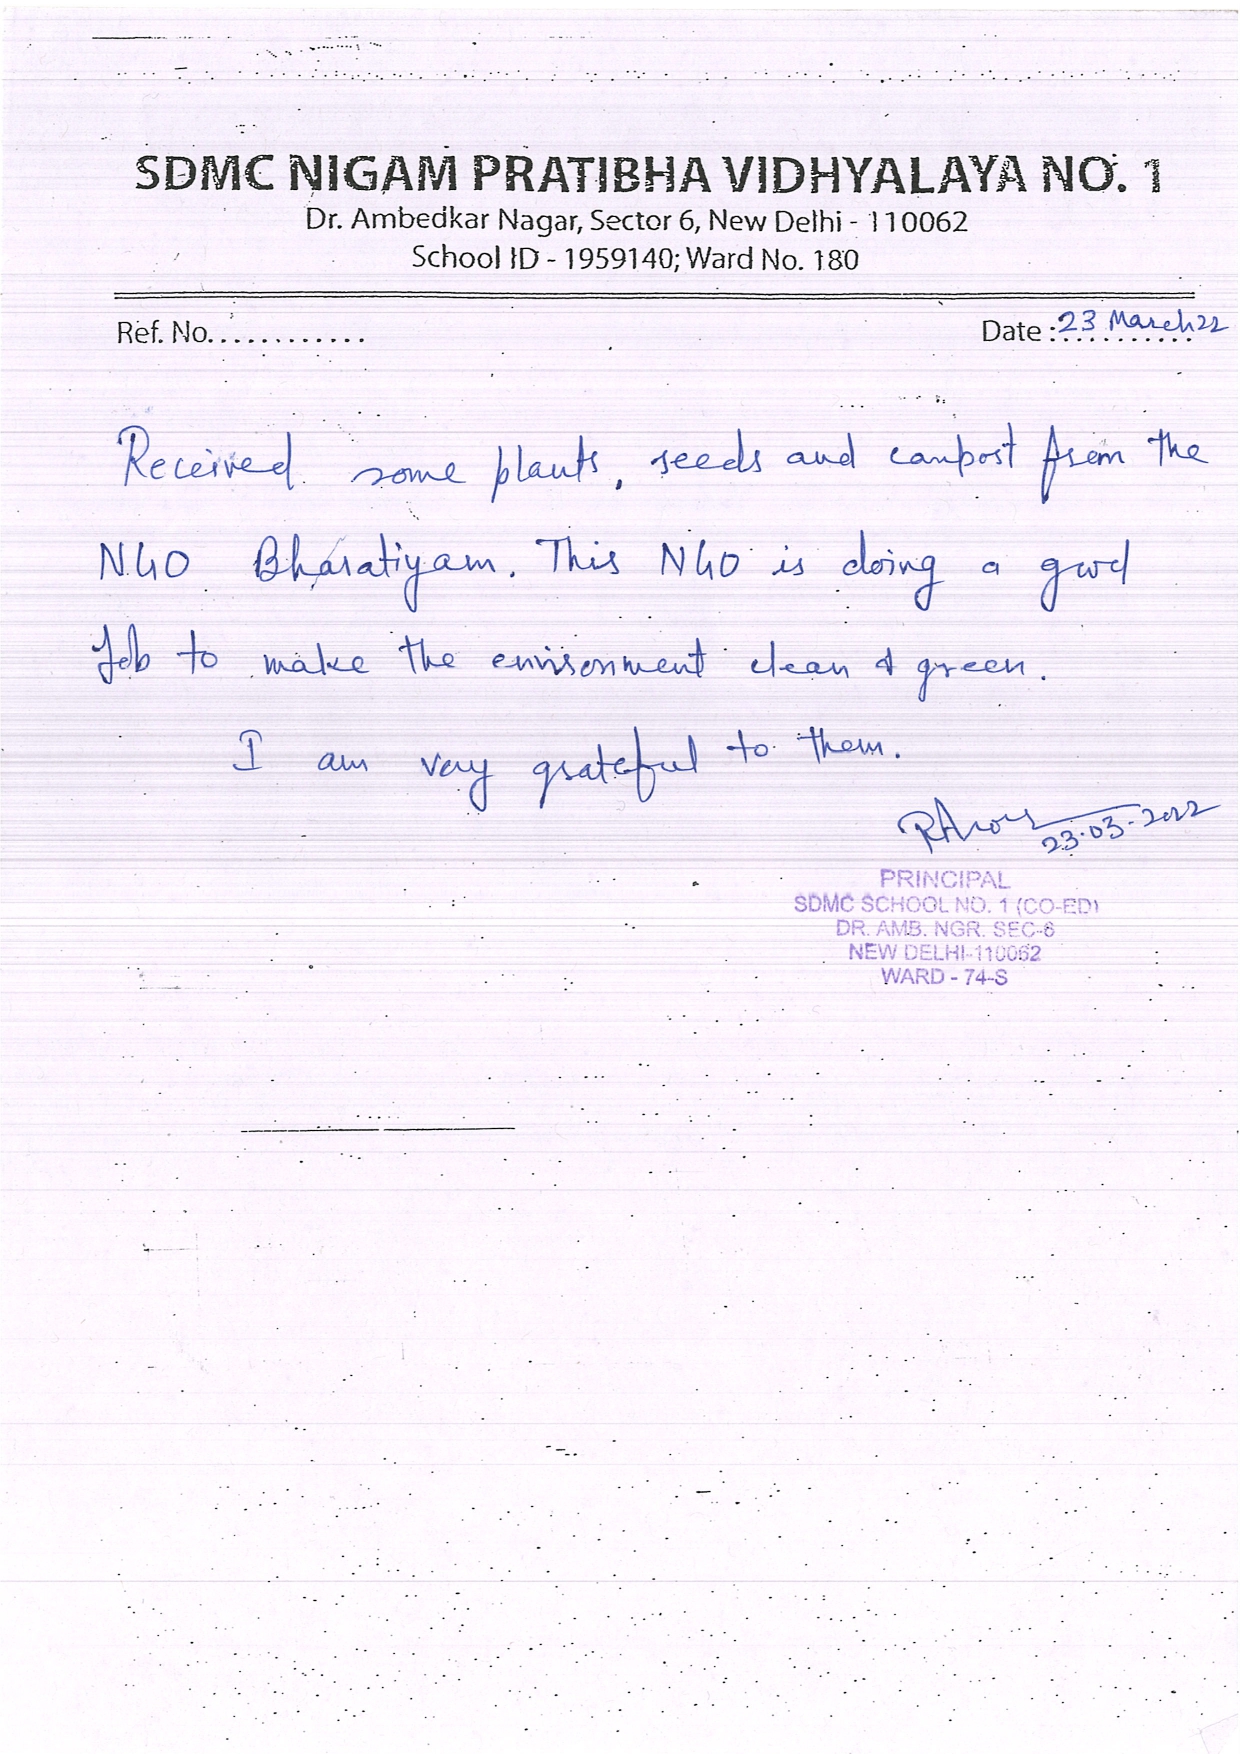 SDMC NIGAM PRATIBHA VIDHYALAYA NO. 1
Dr. Ambedkar Nagar, Sector 6, New Delhi - 110062
School ID - 1959140; Ward No. 180
Ref. No............. Date :23 March 22
Received some plants, seeds and canpost from the
NGO Bharatiyam. This NGO is doing a good
Job to make the environment clean & green.
I am very grateful to them.
23-03-2022
PRINCIPAL
SDMC SCHOOL NO. 1 (CO-ED)
DR. AMB. NGR. SEC-6
NEW DELHI-110062
WARD - 74-S